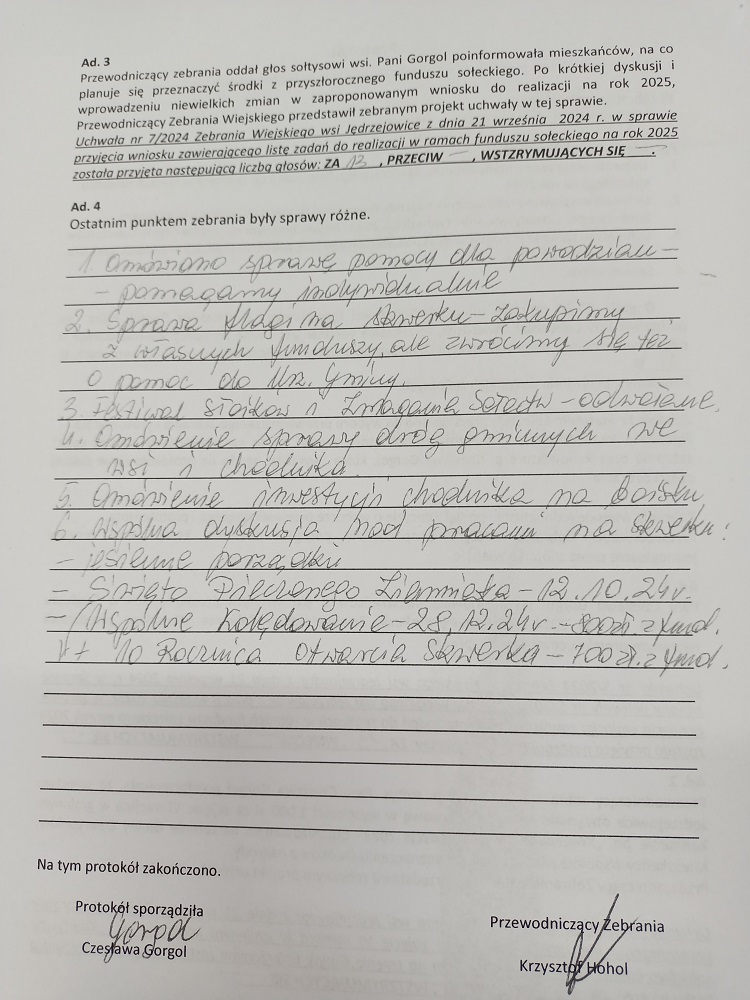 Ad. 3
Przewodniczący zebrania oddał głos sołtysowi wsi. Pani Gorgol poinformowała mieszkańców, na co
planuje się przeznaczyć środki z przyszłorocznego funduszu sołeckiego. Po krótkiej dyskusji i
wprowadzeniu niewielkich zmian w zaproponowanym wniosku do realizacji na rok 2025,
Przewodniczący Zebrania Wiejskiego przedstawił zebranym projekt uchwały w tej sprawie.
Uchwała nr 7/2024 Zebrania Wiejskiego wsi Jędrzejowice z dnia 21 września 2024 r. w sprawie
przyjęcia wniosku zawierającego listę zadań do realizacji w ramach funduszu sołeckiego na rok 2025
została przyjęta następującą liczbą głosów: ZA 13 , PRZECIW — , WSTRZYMUJĄCYCH SIĘ — .
Ad. 4
Ostatnim punktem zebrania były sprawy różne.
1. Omówiono sprawę pomocy dla powodzian –
– pomagamy indywidualnie
2. Sprawa flagi na skwerku – zakupimy
z własnych funduszy, ale zwrócimy się też
o pomoc do Urz. Gminy.
3. Festiwal Słoików i Zmagania Sołectw – odwołane.
4. Omówienie sprawy dróg gminnych we
wsi i chodnika.
5. Omówienie inwestycji chodnika na boisku
6. Wspólna dyskusja nad pracami na skwerku:
– jesienne porządki
– Święto Pieczonego Ziemniaka – 12.10.24r.
– Wspólne Kolędowanie – 28.12.24r. – 800zł z
10 Rocznica otwarcia Skwerka – 700 zł. z
Na tym protokół zakończono.
Protokół sporządziła
Gorgol
Czesława Gorgol
Przewodniczący Zebrania
Krzysztof Hohol